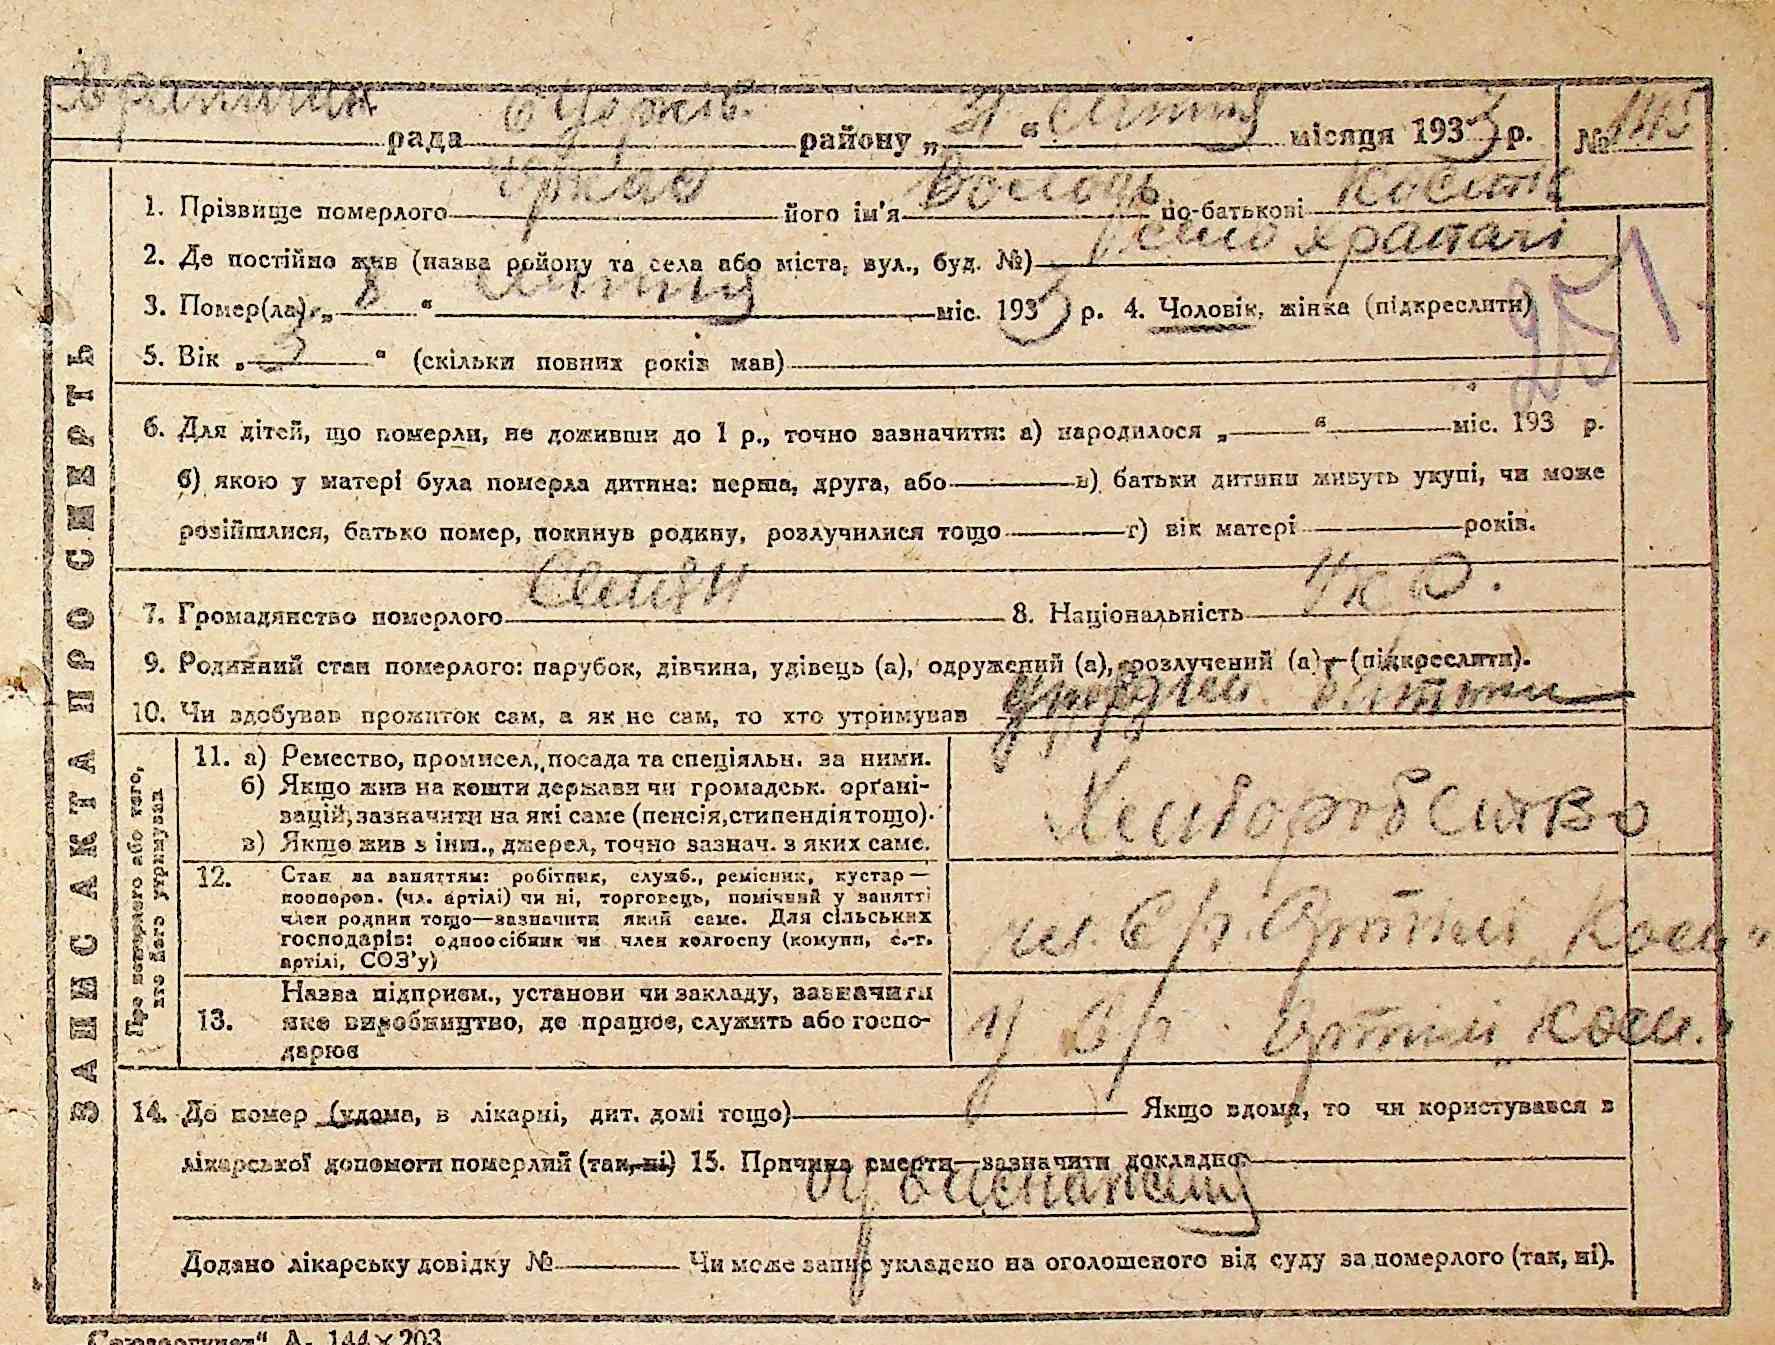 рада району „ 21 “ липня місяця 1933 р. № 145
1. Прізвище померлого його ім'я Володь по-батькові Костян
2. Де постійно жив (назва району та села або міста, вул., буд. №) село Храпачі
3. Помер(ла) „ 8 “ липня міс. 1933 р. 4. Чоловік, жінка (підкреслити)
251
5. Вік „ 3 “ (скільки повних років мав)
6. Для дітей, що померли, не доживши до 1 р., точно зазначити: а) народилося „ “ міс. 193 р.
б) якою у матері була померла дитина: перша, друга, або в) батьки дитини живуть укупі, чи може
розійшлися, батько помер, покинув родину, розлучилися тощо г) вік матері років.
7. Громадянство померлого Селян 8. Національність Укр.
9. Родинний стан померлого: парубок, дівчина, удівець (а), одружений (а), розлучений (а) — (підкреслити).
10. Чи здобував прожиток сам, а як не сам, то хто утримував батьки
Про померлого або того, хто його утримував
11. а) Ремество, промисел, посада та спеціяльн. за ними.
б) Якщо жив на кошти держави чи громадськ. орґані-
зацій, зазначити на які саме (пенсія, стипендія тощо).
в) Якщо жив з інш., джерел, точно зазнач. з яких саме.
Хліборобство
12. Стан за заняттям: робітник, служб., ремісник, кустар —
кооперов. (чл. артілі) чи ні, торговець, помічний у занятті
член родини тощо — зазначити який саме. Для сільських
господарів: одноосібник чи член колгоспу (комуни, с.-г.
артілі, СОЗ'у)
чл. С/г. Артілі
13. Назва підприєм., установи чи закладу, зазначити
яке виробництво, де працює, служить або госпо-
дарює
у С/г. Артілі
14. Де помер (удома, в лікарні, дит. домі тощо) Якщо вдома, то чи користувався з
лікарської допомоги померлий (так, ні) 15. Причина смерти — зазначити докладно:
від виснаження
Додано лікарську довідку № Чи може запис укладено на оголошеного від суду за померлого (так, ні).
ЗАПИС АКТА ПРО СМЕРТЬ
А. 144×203